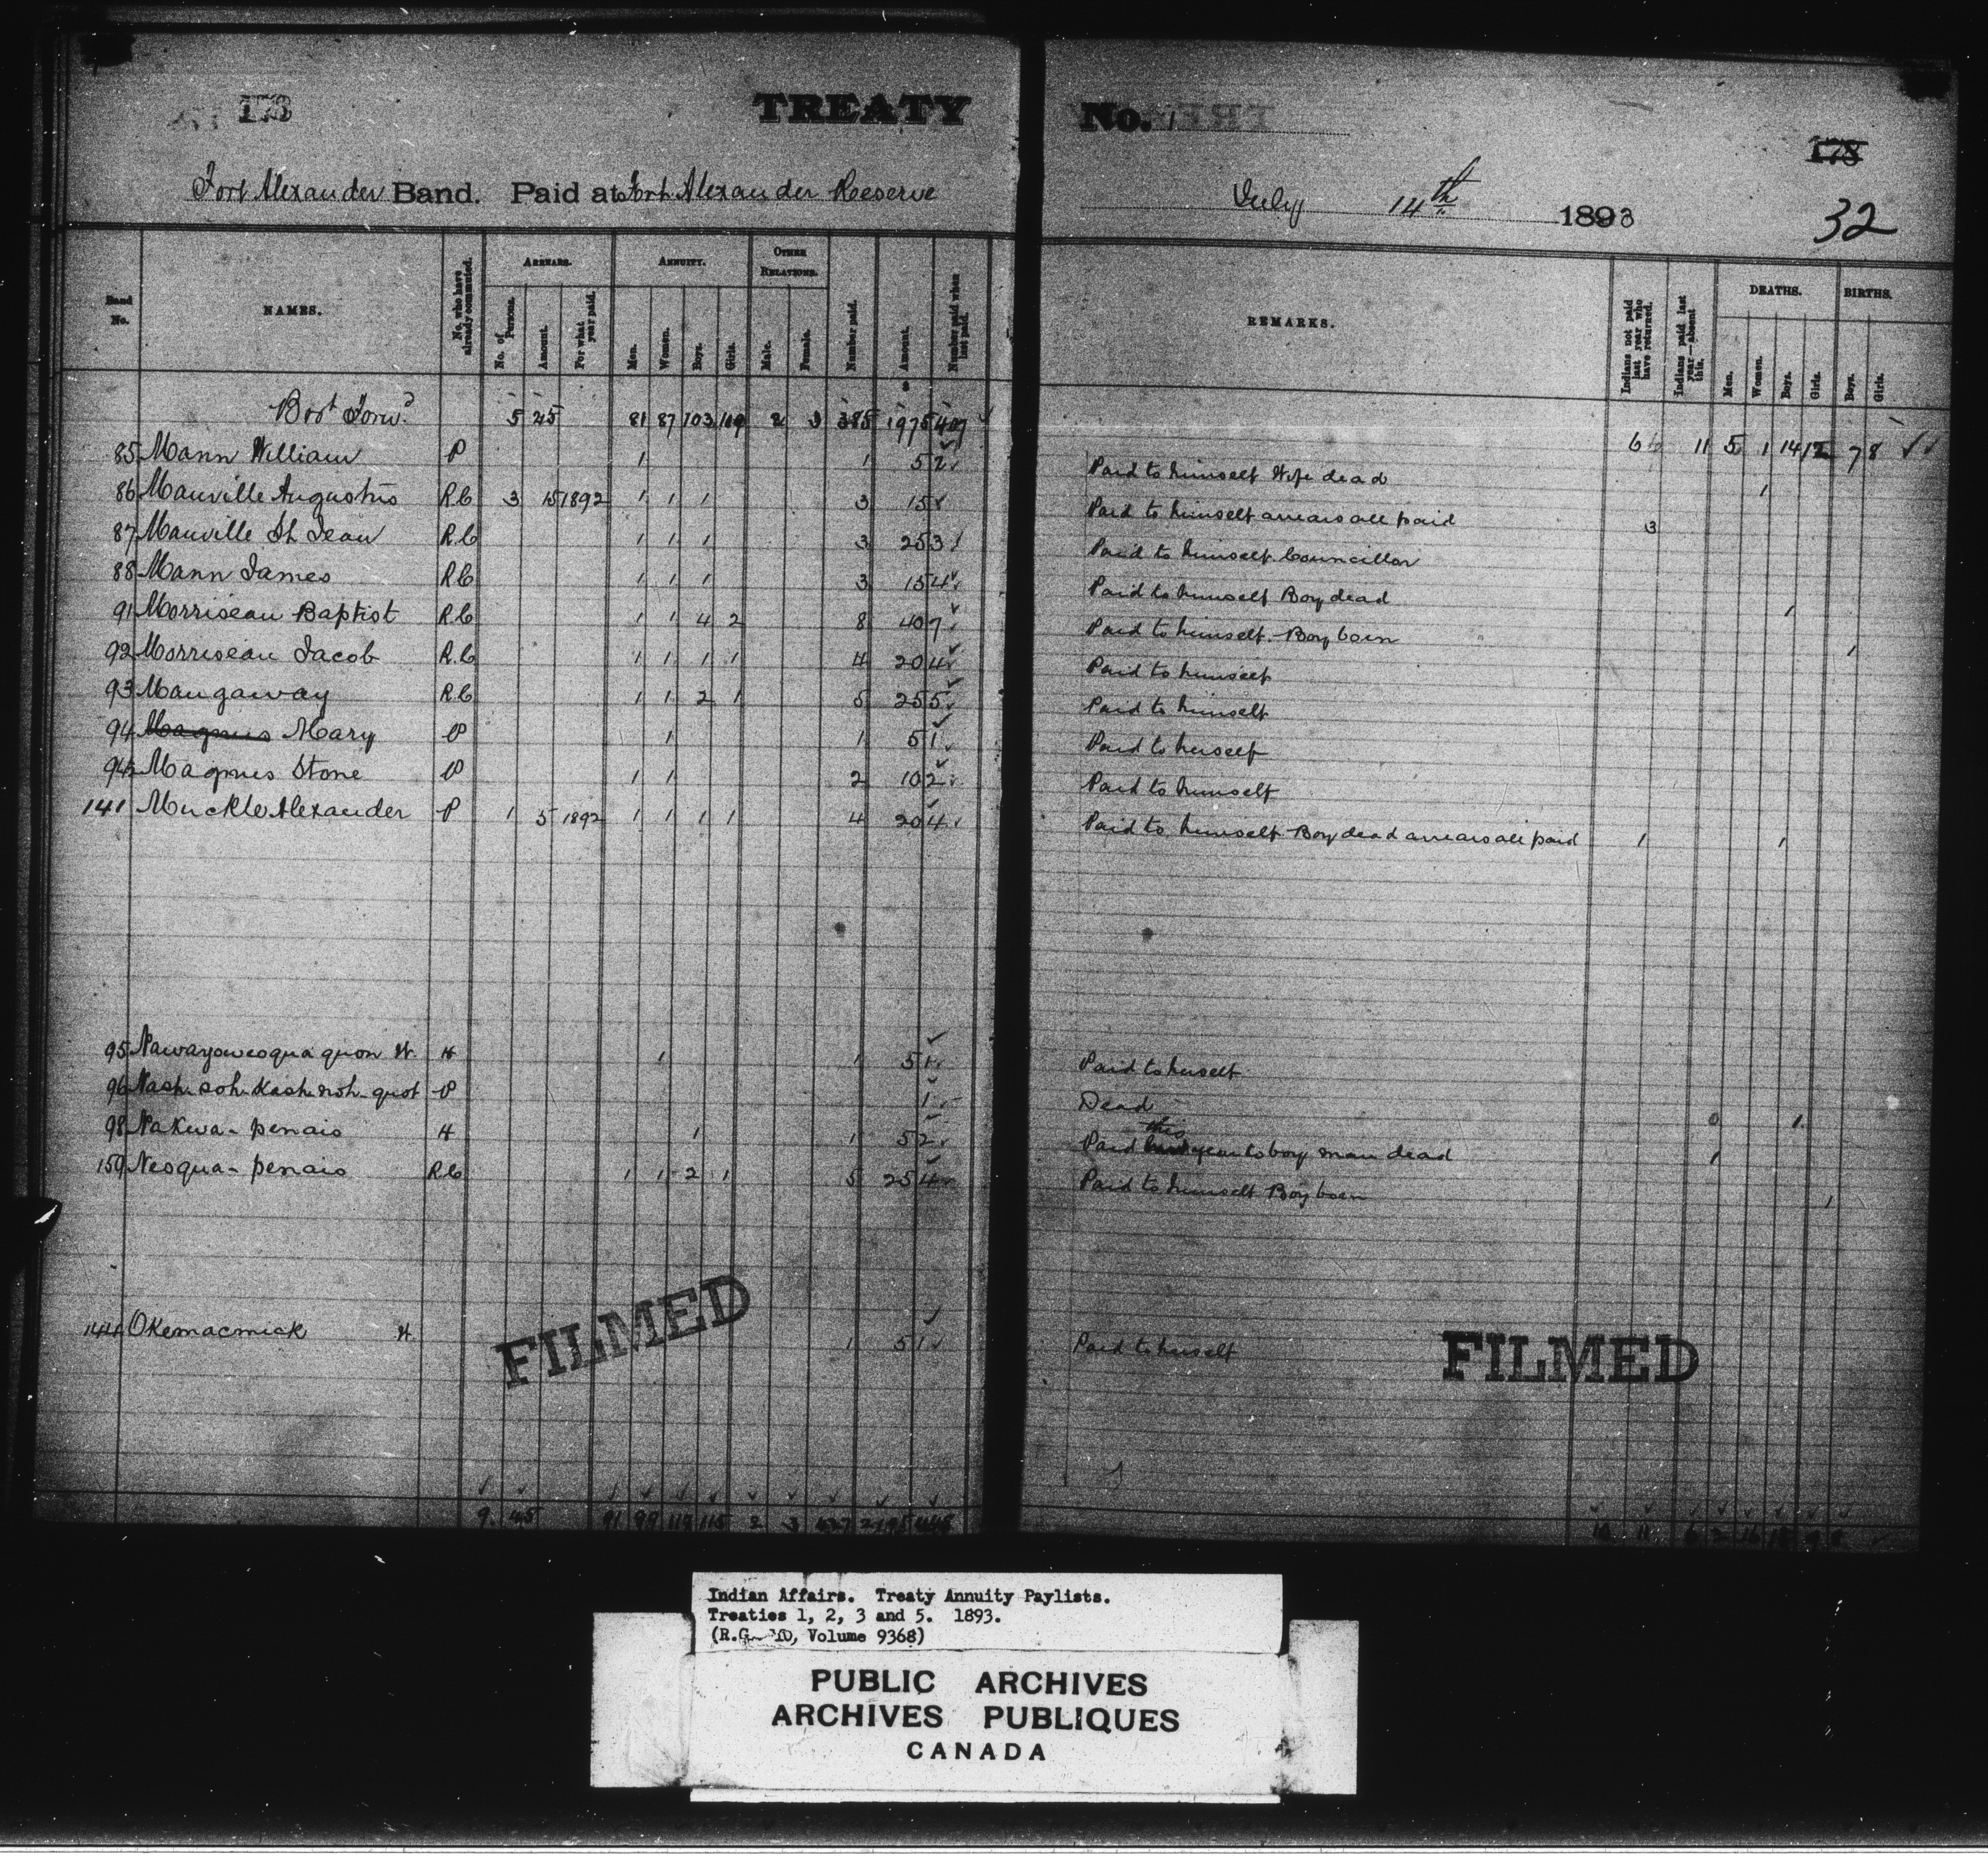 173 TREATY No. 1
173
Fort Alexander Band. Paid at Fort Alexander Reserve July 14th 1893
32
Band No. NAMES. No. who have already commuted. ARREARS. No. of Persons. Amount. For what year paid. ANNUITY. Men. Women. Boys. Girls. OTHER RELATIONS. Male. Female. Number paid. Amount. Number paid when last paid. REMARKS. Indians not paid last year who have returned. Indians paid last year—absent this. DEATHS. Men. Women. Boys. Girls. BIRTHS. Boys. Girls.
Brot Forwd 5 25 81 87 103 109 2 3 385 1975 407 6 11 5 1 14 12 7 8
85 Mann William P 1 1 5 2 Paid to himself Wife dead 1
86 Manville Augustus R.C 3 15 1892 1 1 1 3 15 Paid to himself arrears all paid 3
87 Manville St Jean R.C 1 1 1 3 25 3 Paid to himself Councillor
88 Mann James R.C 1 1 1 3 15 4 Paid to himself Boy dead 1
91 Morriseau Baptist R.C 1 1 4 2 8 40 7 Paid to himself. Boy born 1
92 Morriseau Jacob R.C 1 1 1 1 4 20 4 Paid to himself
93 Maugaway R.C 1 1 2 1 5 25 5 Paid to himself
94 Magnus Mary P 1 1 5 1 Paid to herself
94½ Magnus Stone P 1 1 2 10 2 Paid to himself
141 Muckle Alexander P 1 5 1892 1 1 1 1 4 20 4 Paid to himself Boy dead arrears all paid 1 1
95 Nawayoweoquaquon W. H 1 1 5 1 Paid to herself
96 Nash-soh-kash-noh-quot P 1 Dead 0 1
98 Nakwa-penais H 1 1 5 2 Paid this year to boy man dead 1
159 Neoqua-penais R.C 1 1 2 1 5 25 4 Paid to himself Boy born 1
144 Okemacmick W. 1 5 1 Paid to herself
FILMED
FILMED
9 45 91 99 115 2 3
Indian Affairs. Treaty Annuity Paylists.
Treaties 1, 2, 3 and 5. 1893.
(R.G. 10, Volume 9368)
PUBLIC ARCHIVES
ARCHIVES PUBLIQUES
CANADA